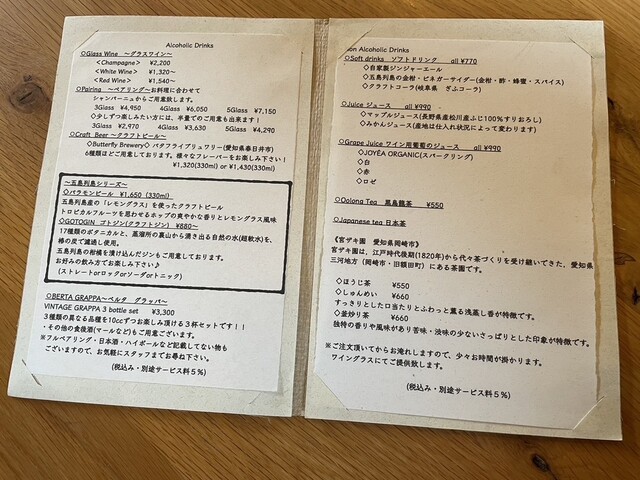 Alcoholic Drinks
◇Glass Wine ～グラスワイン～
＜Champagne＞ ¥2,200
＜White Wine＞ ¥1,320～
＜Red Wine＞ ¥1,540～
◇Pairing ～ペアリング～お料理に合わせて
シャンパーニュからご用意致します。
3Glass ¥4,950 4Glass ¥6,050 5Glass ¥7,150
◇少しずつ楽しみたい方には、半量でのご用意も出来ます！
3Glass ¥2,970 4Glass ¥3,630 5Glass ¥4,290
◇Craft Beer ～クラフトビール～
◇Butterfly Brewery◇ バタフライブリュワリー(愛知県春日井市)
6種類ほどご用意しております。様々なフレーバーをお楽しみ下さい！
¥1,320(330ml) or ¥1,430(330ml)
～五島列島シリーズ～
◇パラモンビール ¥1,650 (330ml)
五島列島産の「レモングラス」を使ったクラフトビール
トロピカルフルーツを思わせるホップの爽やかな香りとレモングラス風味
◇GOTOGIN ゴトジン(クラフトジン) ¥880～
17種類のボタニカルと、蒸溜所の裏山から湧き出る自然の水(超軟水)を、
椿の炭で濾過し使用。
五島列島の柑橘を漬け込んだジンもご用意しております。
お好みの飲み方でお楽しみ下さい♪
(ストレートorロックorソーダorトニック)
◇BERTA GRAPPA～ベルタ グラッパ～
VINTAGE GRAPPA 3 bottle set ¥3,300
３種類の異なる品種を10ccずつお楽しみ頂ける３杯セットです！！
・その他の食後酒(マールなど)もご用意ございます。
※フルペアリング・日本酒・ハイボールなど記載してない物も
ございますので、お気軽にスタッフまでお尋ね下さい。
(税込み・別途サービス料５％)
on Alcoholic Drinks
◇Soft drinks ソフトドリンク all ¥770
◇自家製ジンジャーエール
◇五島列島の金柑・ビネガーサイダー(金柑・酢・蜂蜜・スパイス)
◇クラフトコーラ(岐阜県 ぎふコーラ)
◇Juice ジュース all ¥990
◇マップルジュース(長野県産松川産ふじ100％すりおろし)
◇みかんジュース(産地は仕入れ状況によって変わります)
◇Grape Juice ワイン用葡萄のジュース all ¥990
◇JOYÉA ORGANIC(スパークリング)
◇白
◇赤
◇ロゼ
◇Oolong Tea 黒烏龍茶 ¥550
◇Japanese tea 日本茶
《宮ザキ園 愛知県岡崎市》
宮ザキ園は、江戸時代後期(1820年)から代々茶づくりを受け継いできた、愛知県
三河地方 (岡崎市・旧額田町)にある茶園です。
・ほうじ茶 ¥550
・しゅんめい ¥660
すっきりとした口当たりとふわっと薫る浅蒸し香が特徴です。
・釜炒り茶 ¥660
独特の香りや風味があり苦味・渋味の少ないさっぱりとした印象が特徴です。
※ご注文頂いてからお淹れしますので、少々お時間が掛かります。
ワイングラスにてご提供致します。
(税込み・別途サービス料５％)